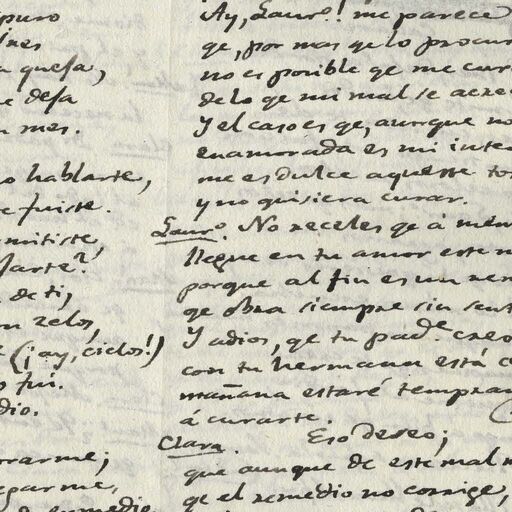 puro
quesa,
desa
mes.
hablarte,
fuiste.
mitiste,
sarte?
de ti,
zelos,
(¡ay, cielos!)
fui.
dio.
rrarme;
garme,
Ay, Laur.º! me parece
qe, por mas qe lo procur
no es posible qe me cur
de lo qe mi mal se acre
Y el caso es qe, aunque no
enamorada es mi inte
me es dulce aqueste to
y no quisiera curar.
Laur.º No receles qe á mén
llegue en tu amor este m
porque al fin es un ve
qe obra siempre sin sent
Y adios, qe tu pad.e creo
con tu hermana está
mañana estaré tempran
á curarte.
Clara. Eso deseo;
que aunque de este mal
qe el remedio no corrige,